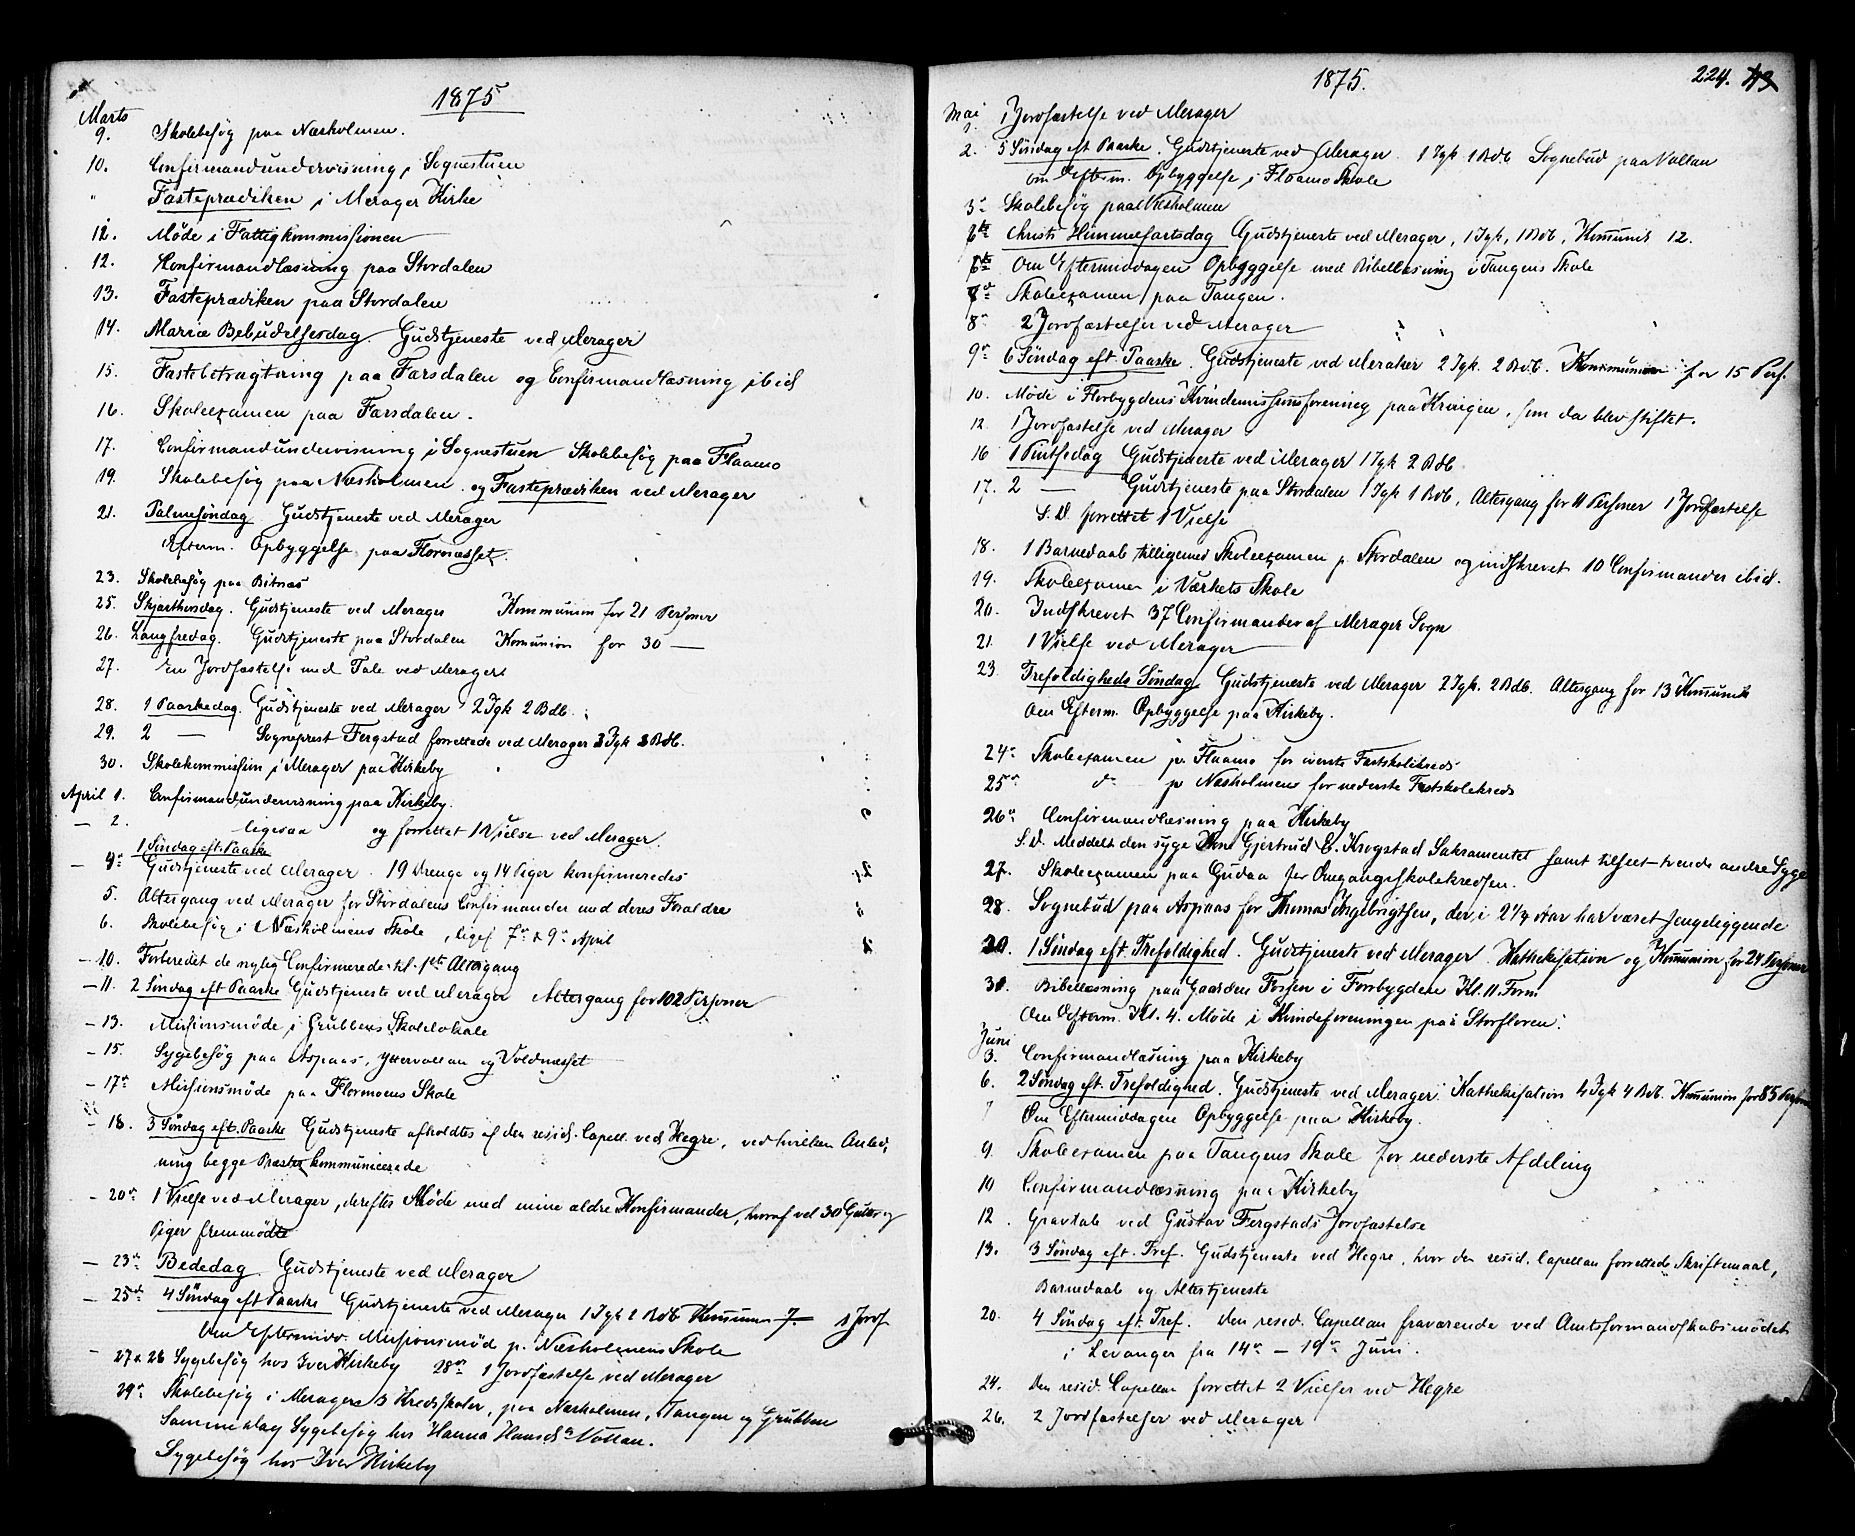 1875
Marts
9. Skolebesøg paa Næsholmen.
10. Confirmandundervisning i Sognestuen
" Fasteprædiken i Merager Kirke
12. Møde i Fattigkommissionen
12. Konfirmandlæsning paa Stordalen
13. Fasteprædiken paa Stordalen
14. Mariæ Bebudelsesdag Gudstjeneste ved Merager
15. Fastebetragtning paa Farsdalen og Confirmandlæsning ibid
16. Skoleexamen paa Farsdalen.
17. Confirmandundervisning i Sognestuen Skolebesøg paa Flaamo
19. Skolebesøg paa Næsholmen og Fasteprædiken ved Merager
21. Palmesøndag Gudstjeneste ved Merager
Efterm. Opbyggelse paa Flornæsset.
23. Skolebesøg paa Bitnæs
25. Skjærthorsdag. Gudstjeneste ved Merager Kommunion for 21 Personer
26. Langfredag. Gudstjeneste paa Stordalen Komunion for 30 —
27. En Jordfæstelse med Tale ved Merager
28. 1 Paaskedag. Gudstjeneste ved Merager 2 Igk 2 Bdb.
29. 2 — Sogneprest Fergstad forrettede ved Merager 3 Igk 3 Bdb.
30. Skolekommission i Merager paa Kirkeby
April 1. Confirmandundervisning paa Kirkeby.
— 2. ligesaa og forrettet 1 Vielse ved Merager.
1 Søndag eft. Paaske
— 4de Gudstjeneste ved Merager. 19 Drenge og 14 Piger konfirmeredes
5. Altergang ved Merager for Stordalens Confirmander med deres Foraldre
6. Skolebesøg i Næsholmens Skole, liges 7de & 9de April
— 10. Forberedet de nylig Confirmerede til 1ste Altergang
— 11. 2 Søndag eft Paaske Gudstjeneste ved Merager Altergang for 102 Personer
— 13. Missionsmøde i Grubbens Skolelokale
— 15. Sygebesøg paa Aspaas, Yttervollan og Voldnæsset
— 17de Missionsmøde paa Flormoens Skole
— 18. 3 Søndag eft. Paaske Gudstjeneste afholdtes af den resid. Capell. ved Hegre, ved hvilken Anled-
ning begge Præster kommunicerede
— 20de 1 Vielse ved Merager, derefter Møde med mine ældre Konfirmander, hvoraf vel 30 Gutter og
Piger fremmødte
— 23de Bededag. Gudstjeneste ved Merager
— 25de 4 Søndag eft Paaske Gudstjeneste ved Merager 1 Igk 2 Bdb Komunion 7. 1 Jordf
Om Eftermidd. Missionsmød p. Næsholmens Skole
— 27 & 26 Sygebesøg hos Iver Kirkeby 28de 1 Jordfæstelse ved Merager
29de Skolebesøg i Meragers 3 Kredsskoler, paa Næsholmen, Tangen og Grubben
Sammedag Sygebesøg hos Hanna Hansdr Vollan.
Sygebesøg hos Iver Kirkeby
1875. 224. 43
Mai
1. 1 Jordfæstelse ved Merager
2. 5 Søndag eft Paaske. Gudstjeneste ved Merager 1 Igk 1 Bdb Sognebud paa Vollan
om Efterm. Opbyggelse i Flaamo Skole
3de Skolebesøg paa Næsholmen
6te Christi Himmelfartsdag Gudstjeneste ved Merager, 1 Igk, 1 Bdb, Komunik 12.
6te Om Eftermiddagen Opbyggelse med Bibellæsning i Tangens Skole
7de Skoleexamen paa Tangen.
8de 2 Jordfæstelser ved Merager
9de 6 Søndag eft. Paaske. Gudstjeneste ved Meraker 2 Igk. 2 Bdb. Kommunion for 15 Pers.
10. Møde i Florbygdens Kvindemissionsforening paa Krogen, som da blev stiftet.
12. 1 Jordfæstelse ved Merager
16 1 Pintsedag Gudstjeneste ved Merager 1 Igk 2 Bdb
17. 2 — Gudstjeneste paa Stordalen 1 Igk 1 Bdb, Altergang for 11 Personer 1 Jordfæstelse
S. D. forrettet 1 Vielse
18. 1 Barnedaab tilligemed Skoleexamen p. Stordalen og indskrevet 10 Confirmander ibid.
19. Skoleexamen i Værkets Skole
20. Indskrevet 37 Confirmander af Merager Sogn
21. 1 Vielse ved Merager
23. Trefoldigheds Søndag Gudstjeneste ved Merager 2 Igk. 2 Bdb. Altergang for 13 Komunik
Om Efterm. Opbyggelse paa Kirkeby.
24de Skoleexamen p. Flaamo for øverste Fastskolekreds
25de do p. Næsholmen for nederste Fastskolekreds
26de Confirmandlæsning paa Kirkeby
S. D. Meddelt den syge Kone Gjertrud E. Krogstad Sakramentet samt tilseet tvende andre Syge
27. Skoleexamen paa Gudaa for Omgangsskolekredsen.
28. Sognebud paa Aspaas for Thomas Ingebrigtsen, der i 2 1/2 Aar har været sengeliggende
30. 1 Søndag eft Trefoldighed. Gudstjeneste ved Merager. Kathekisation og Komunion for 24 Personer
31. Bibellæsning paa Gaarden Fossen i Florbygden Kl. 11 Form
Om Efterm. Kl. 4. Møde i Kvindeforeningen paa Storfloren.
Juni
3. Confirmandlæsning paa Kirkeby
6. 2 Søndag eft. Trefoldighed. Gudstjeneste ved Merager. Kathekisation 4 Igk 4 Bdb. Komunion for 85 Person
Om Eftermiddagen Opbyggelse paa Kirkeby.
9. Skoleexamen paa Tangens Skole for nederste Afdeling
10 Confirmandlæsning paa Kirkeby
12. Gravtale ved Gustav Fergstads Jordfæstelse
13. 3 Søndag eft. Tref. Gudstjeneste ved Hegre, hvor den resid. Capellan forrettede Skriftemaal,
Barnedaab og Altertjeneste
20. 4 Søndag eft. Tref. Den resid. Capellan fraværende ved Amtsformandskabsmødet
i Levanger fra 14de — 19de Juni.
24. Den resid. Capellan forrettet 2 Vielser ved Hegre
26. 2 Jordfæstelser ved Merager